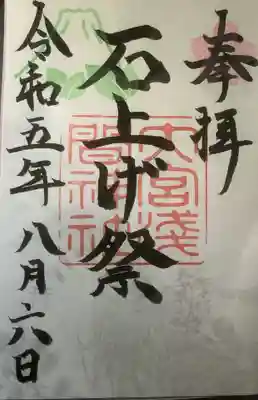 奉拝
石上げ祭
大宮浅
間神社
令和五年八月六日